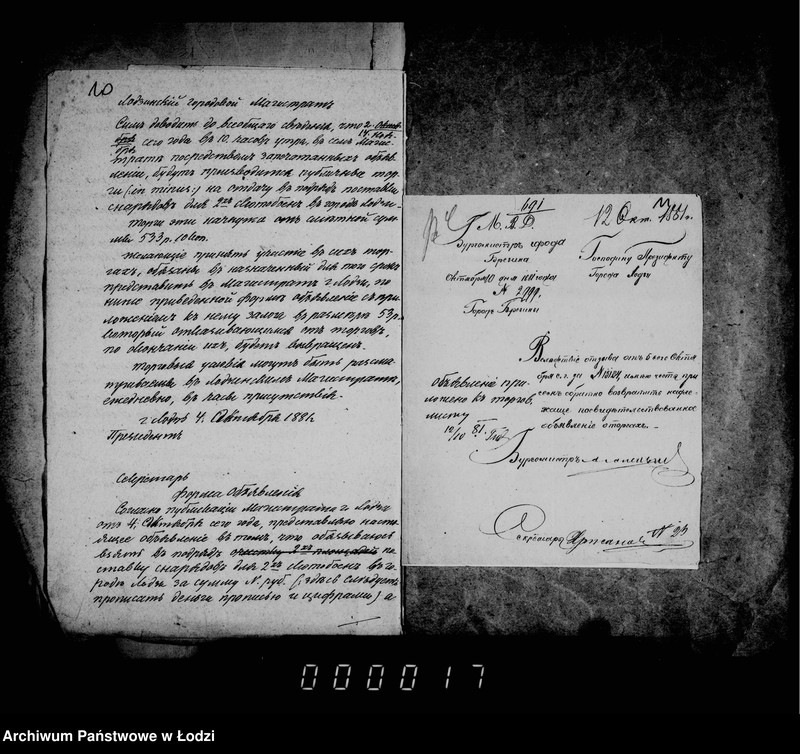 10
Лодзинскій городовой Магистратъ
Симъ доводитъ до всеобщаго свѣдѣнія, что 2 Октяб-
14 Нояб-
бря сего года въ 10. часовъ утра, въ семъ Магис-
тратѣ посредствомъ запечатанныхъ объяв-
леній, будутъ производиться публичные тор-
ги (:in minus:) на отдачу въ подрядъ поставки
снарядовъ для 2хъ скотобоенъ въ городѣ Лодзи.
Торги эти начнутся отъ смѣтной сум-
мы 533 р. 10 коп.
Желающіе принять участіе въ сихъ тор-
гахъ, обязаны въ назначенный для того срокъ
представить въ Магистратъ г. Лодзи, по
ниже приведенной формѣ объявленіе съ при-
ложеніемъ къ нему залога въ размѣрѣ 53 р.
который отказывающимся отъ торговъ,
по окончаніи ихъ, будетъ возвращенъ.
Торговыя условія могутъ быть разсма-
триваемы въ Лодзинскомъ Магистратѣ,
ежедневно, въ часы присутствія.
г. Лодзь 4. Октября 1881
Президентъ
Секретарь
Форма Объявленія
Согласно публикаціи Магистрата г. Лодзи
отъ 4. Октября сего года, представляю насто-
ящее объявленіе въ томъ, что обязываюсь
взять въ подрядъ 2хъ площадей по
ставку снарядовъ для 2хъ скотобоенъ въ го-
родѣ Лодзи за сумму N. руб. (:здѣсь слѣдуетъ
прописать деньги прописью и цифрами) а
691
12 Окт. 1881 г.
М. В. Д.
Бургомистръ города
Згержа
Октября 10 дня 1881 года
№ 2999.
Городъ Згержъ
Господину Президенту
Города Лодзи
Вслѣдствіе отзыва отъ 6 сего Октя
бря с. г. за № имѣю честь при
семъ обратно возвратить надле-
жаще посвидѣтельствованное
объявленіе о торгахъ.
Объявленіе при-
ложено къ торгов.
листу
12/10 81.
Бургомистръ
Секретарь
000017
Archiwum Państwowe w Łodzi